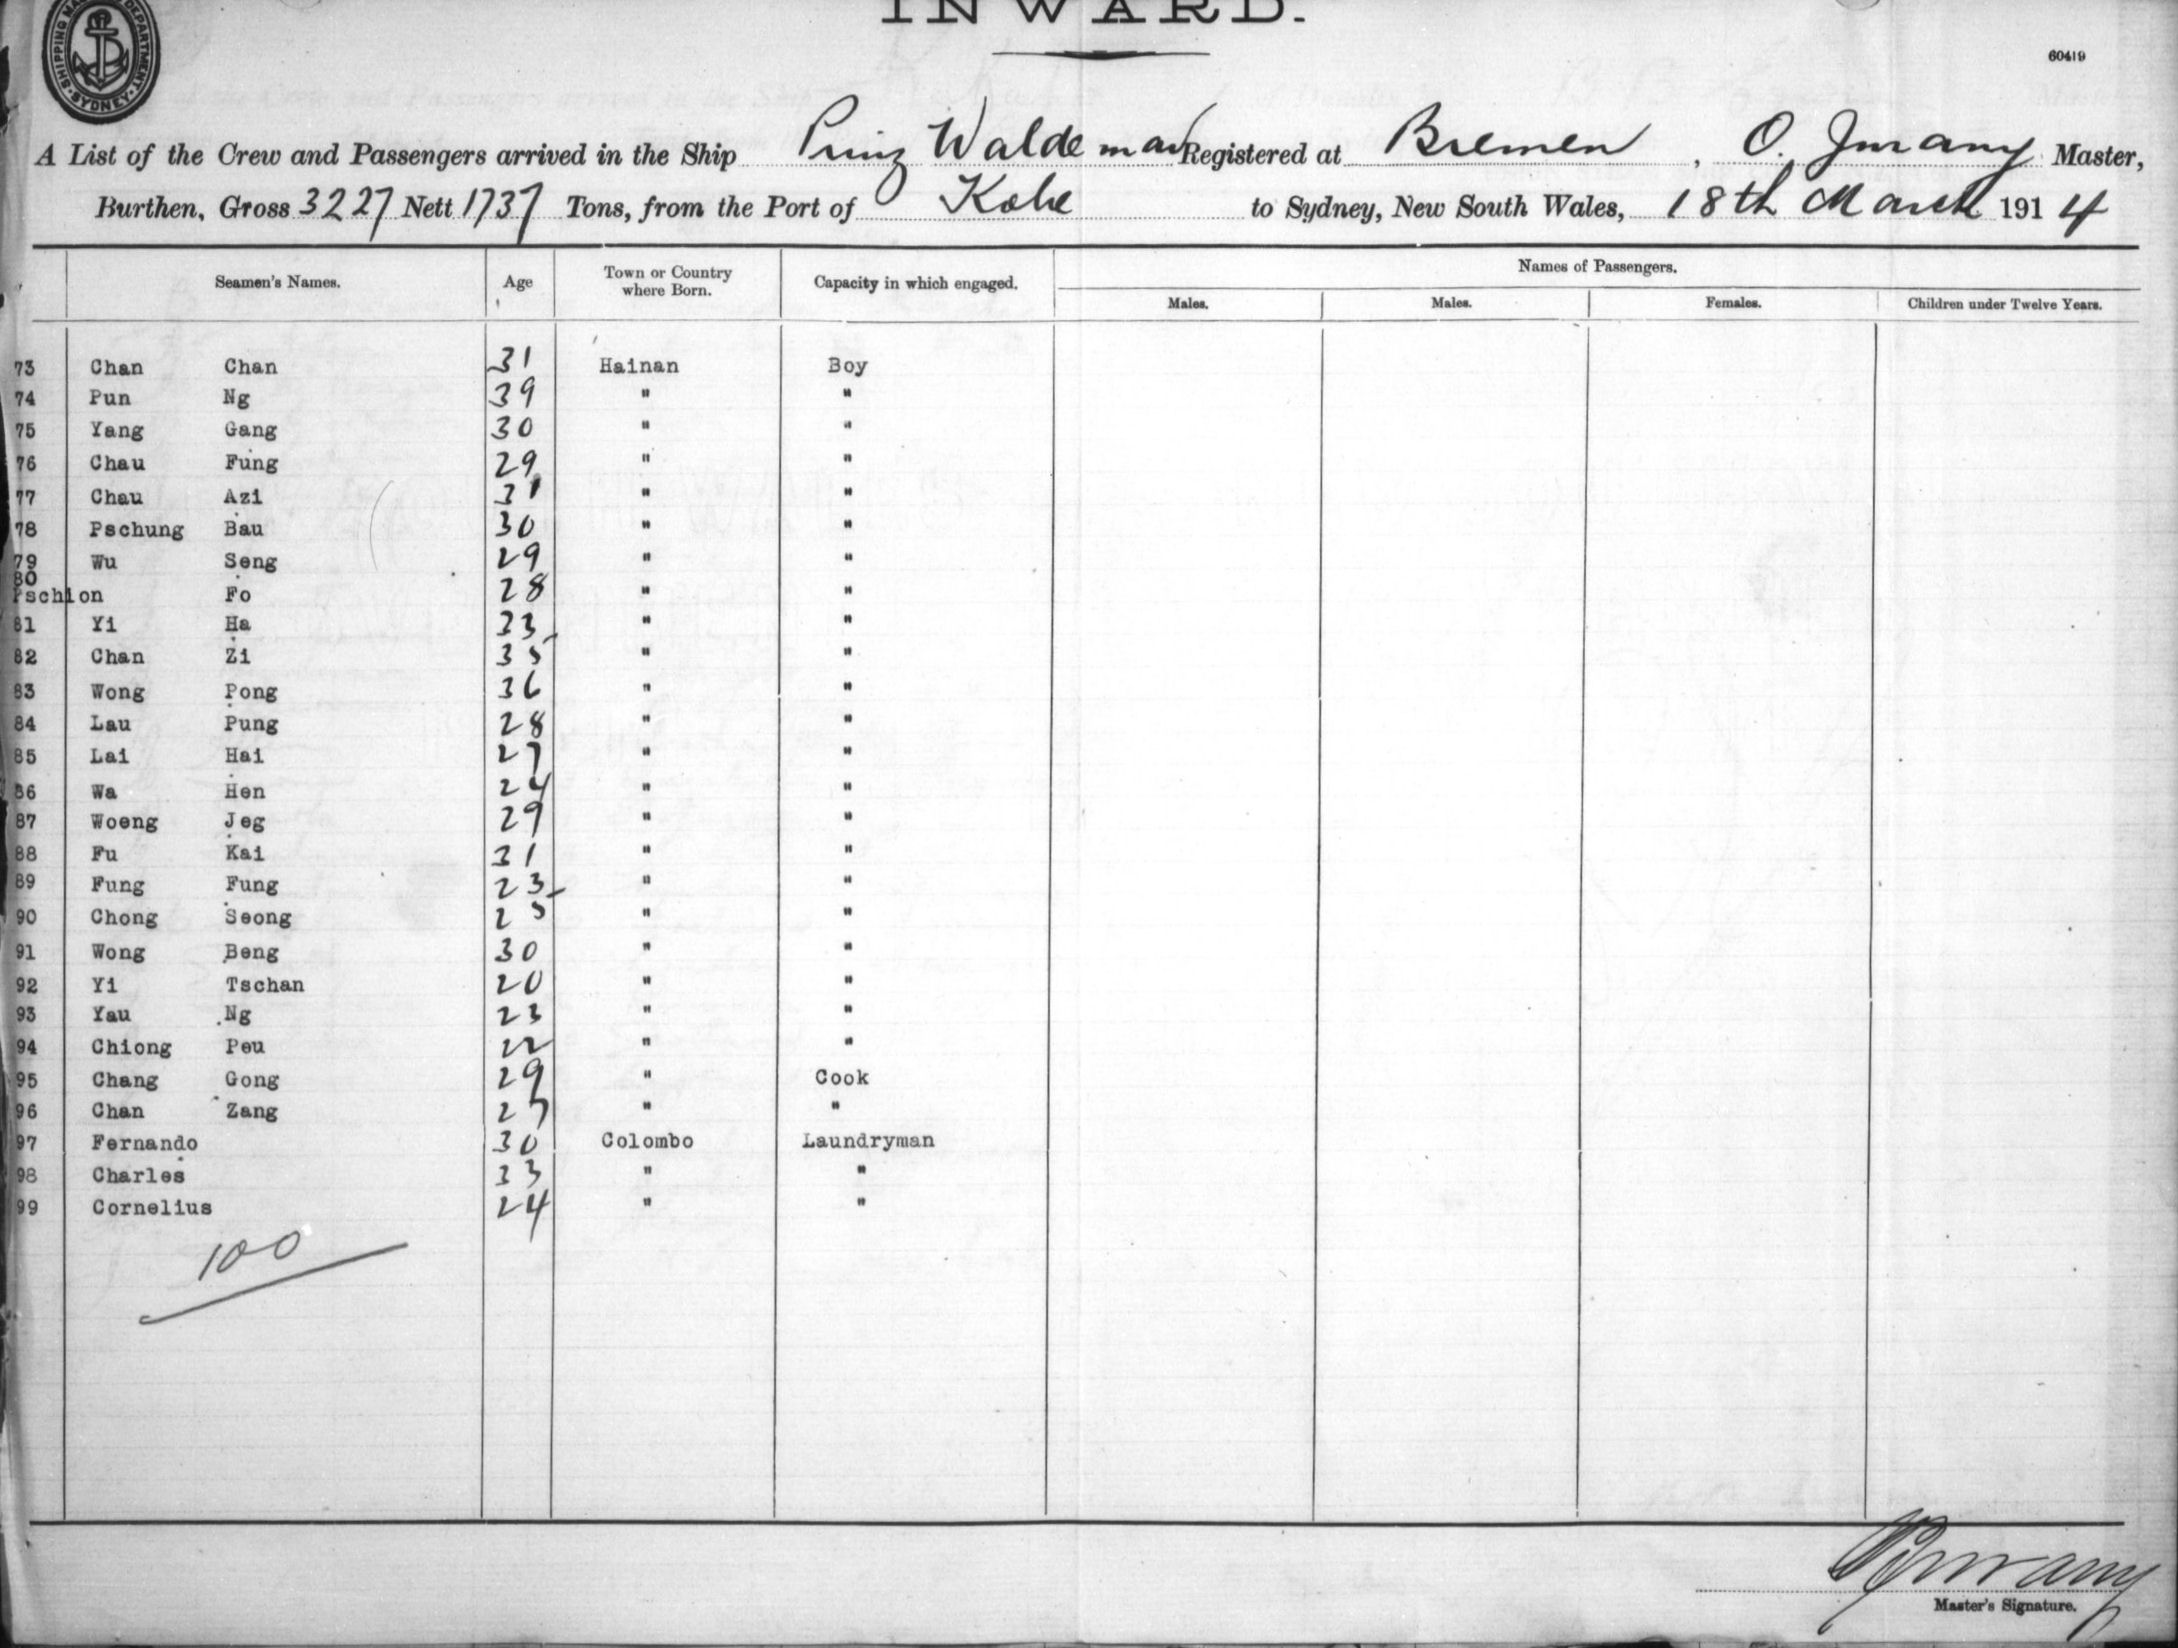 INWARD.
SHIPPING MA DEPARTMENT SYDNEY
60419
A List of the Crew and Passengers arrived in the Ship Prinz Waldemar Registered at Bremen, O. Jurany Master,
Burthen, Gross 3227 Nett 1737 Tons, from the Port of Kobe to Sydney, New South Wales, 18th March 1914
Seamen's Names. Age Town or Country where Born. Capacity in which engaged. Names of Passengers.
Males. Males. Females. Children under Twelve Years.
73 Chan Chan 31 Hainan Boy
74 Pun Ng 39 " "
75 Yang Gang 30 " "
76 Chau Fung 29 " "
77 Chau Azi 31 " "
78 Pschung Bau 30 " "
79 Wu Seng 29 " "
80
Pschion Fo 28 " "
81 Yi Ha 33 " "
82 Chan Zi 35 " "
83 Wong Pong 36 " "
84 Lau Pung 28 " "
85 Lai Hai 27 " "
86 Wa Hen 24 " "
87 Woeng Jeg 29 " "
88 Fu Kai 31 " "
89 Fung Fung 23 " "
90 Chong Seong 25 " "
91 Wong Beng 30 " "
92 Yi Tschan 20 " "
93 Yau Ng 23 " "
94 Chiong Peu 22 " "
95 Chang Gong 29 " Cook
96 Chan Zang 27 " "
97 Fernando 30 Colombo Laundryman
98 Charles 33 " "
99 Cornelius 24 " "
100
Master's Signature.